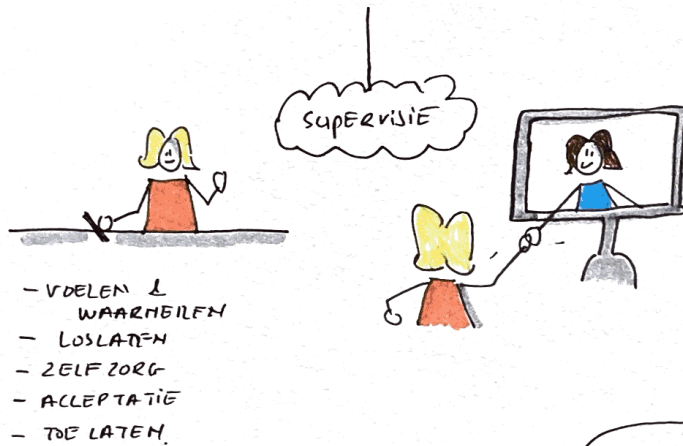 SUPERVISIE
- VOELEN &
WAARNEMEN
- LOSLATEN
- ZELFZORG
- ACCEPTATIE
- TOE LATEN.